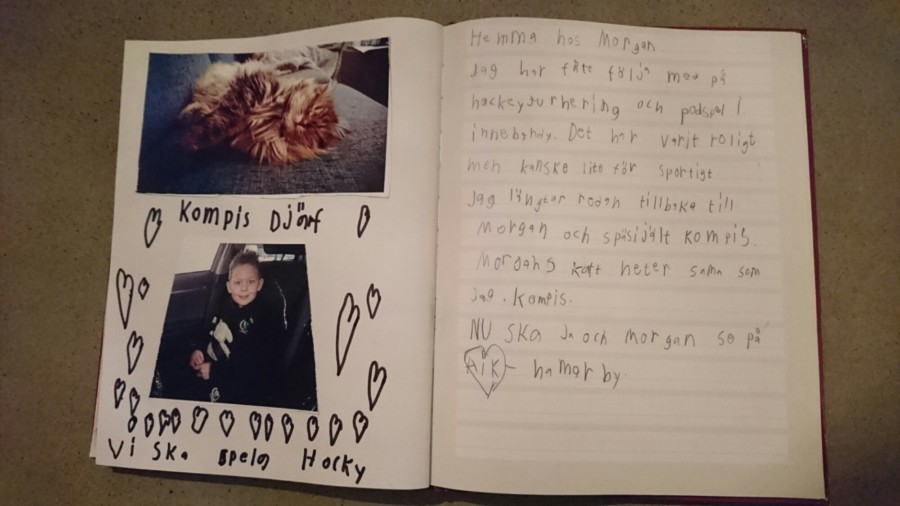 Kompis Djärf
Vi ska spela Hocky
Hemma hos Morgan.
Jag har fåte följa med på
hockeyturnering och padspel i
innebandy. Det har varit roligt
men kanske lite för sportigt
Jag längtar redan tillbaka till
Morgan och späsijält Kompis.
Morgans katt heter sama som
jag. Kompis.
NU ska ja och morgan se på
AiK - hamarby.